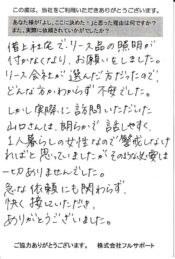 この度は、当社をご利用いただきありがとうございます。
あなた様が「よし、ここに決めた！」と思った理由は何ですか？
また、実際に依頼されていかがでしたか？
借上社宅で、リース品の照明が
付かなくなり、お願いをしました。
リース会社が選んだ方だったので、
どんな方かわからず不安でした。
しかし実際に訪問いただいた
山口さんは、明らかで話しやすく、
1人暮らしの女性なので警戒しなけ
ればと思っていましたがそのような必要は
一切ありませんでした。
急な依頼にも関わらず、
快く接していただき、
ありがとうございました。
ご協力ありがとうございます。 株式会社フルサポート